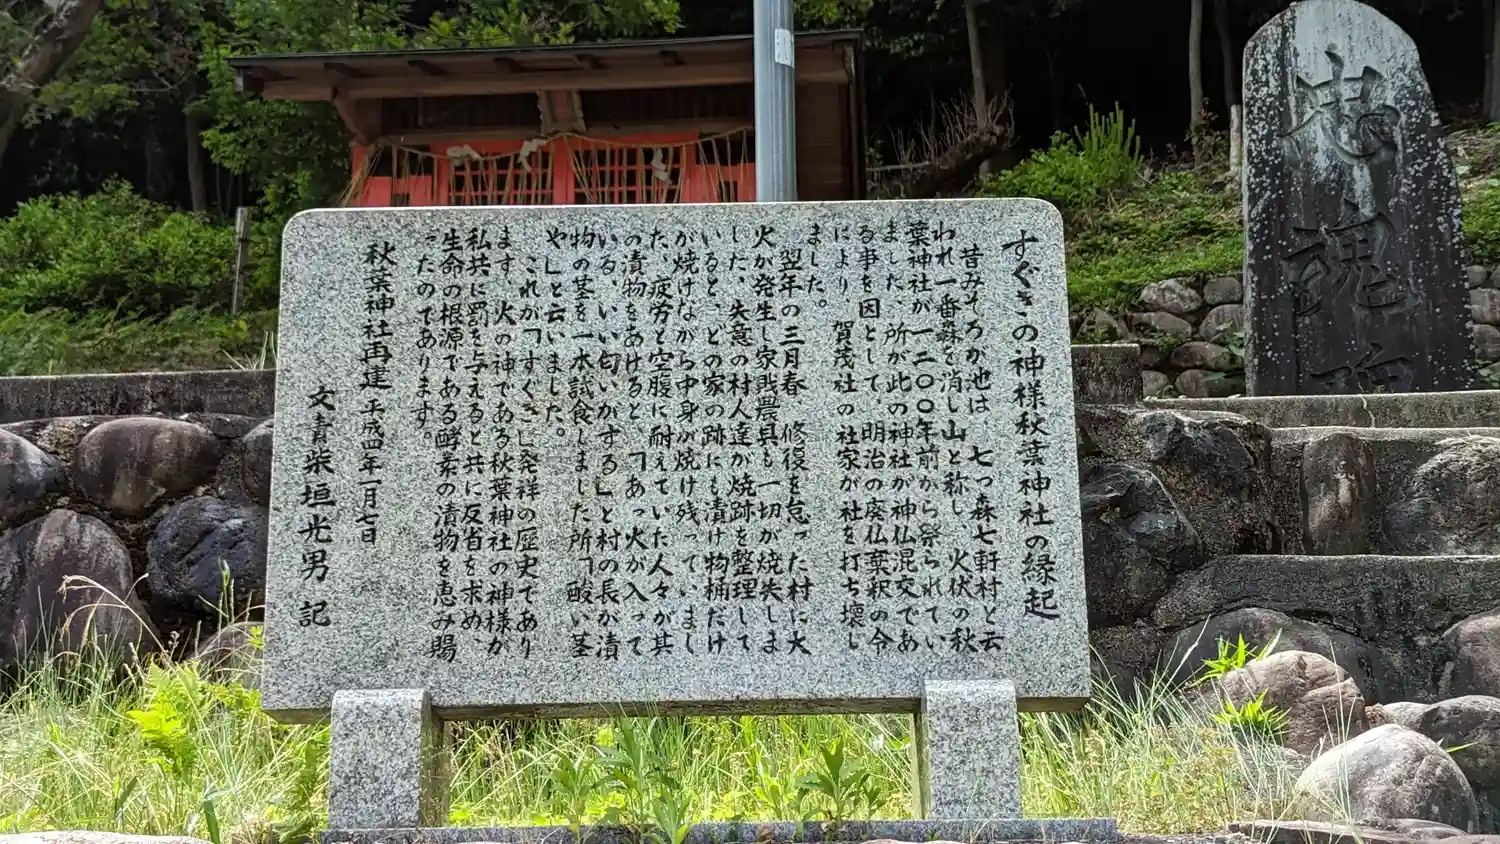 すぐきの神様秋葉神社の縁起
昔みぞろが池は、七つ森七軒村と云
われ一番森を消し山と称し、火伏の秋
葉神社が一二〇〇年前から祭られてい
ました、所が此の神社が神仏混交であ
る事を因として、明治の廃仏棄釈の令
により、賀茂社の社家が社を打ち壊し
ました。
翌年の三月春、修復を怠った村に大
火が発生し家財農具も一切が焼失しま
した、失意の村人達が焼跡を整理して
いると、どの家の跡にも漬け物桶だけ
が焼けながら中身が焼け残っていまし
た、疲労と空腹に耐えていた人々が其
の漬物をあけると、「あっ火が入って
いる、いい匂いがする」と村の長が漬
物の茎を一本試食しました所「酸い茎
や」と云いました。
これが「すぐき」発祥の歴史であり
ます、火の神である秋葉神社の神様が
私共に罰を与えると共に反省を求め、
生命の根源である酵素の漬物を恵み賜
ったのであります。
秋葉神社再建 平成四年一月七日
文責柴垣光男 記
忠魂碑